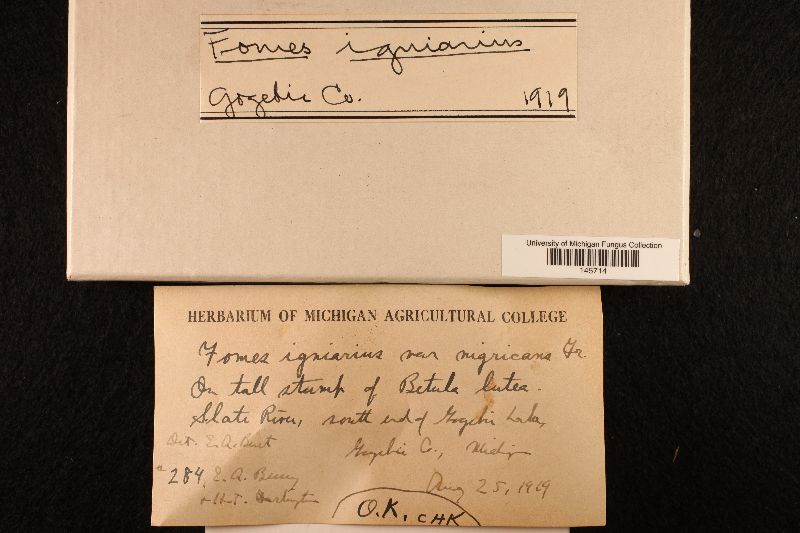 Fomes igniarius
Gogebic Co. 1919
University of Michigan Fungus Collection
145714
HERBARIUM OF MICHIGAN AGRICULTURAL COLLEGE
Fomes igniarius var nigricans Fr.
On tall stump of Betula lutea.
Slate River, south end of Gogebic Lake,
Det. E. A. Burt Gogebic Co., Mich
284, E. A. Bessey Aug 25, 1919
+ H. T. Darlington
O.K. CHK